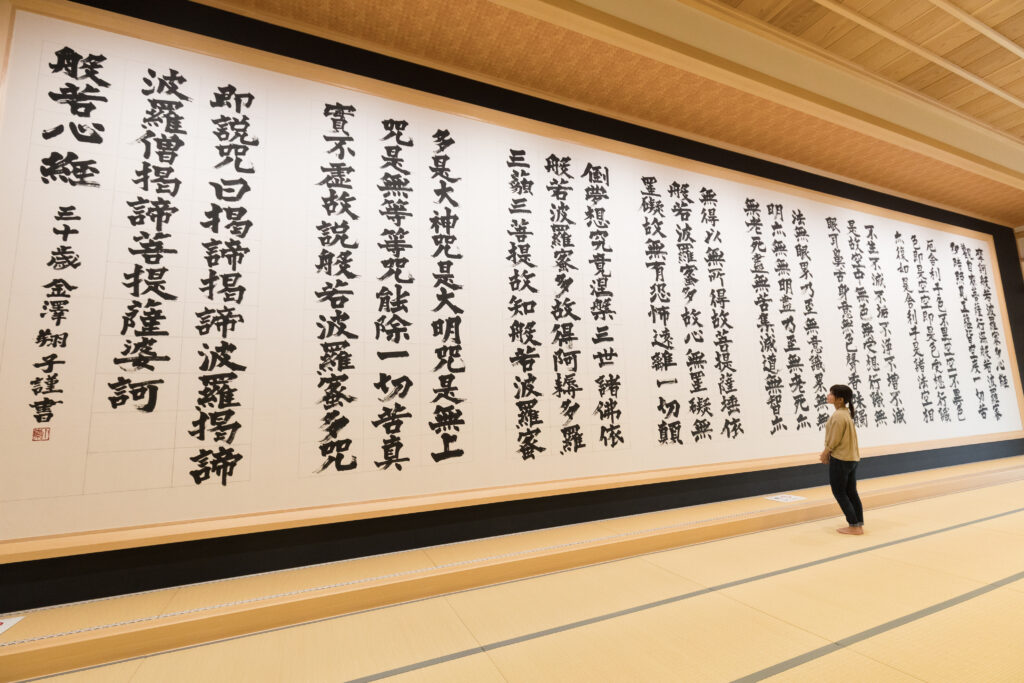 摩訶般若波羅蜜多心経
観自在菩薩行深般若波羅蜜
多時照見五蘊皆空度一切苦
厄舎利子色不異空空不異色
色即是空空即是色受想行識
亦復如是舎利子是諸法空相
不生不滅不垢不浄不増不減
是故空中無色無受想行識無
眼耳鼻舌身意無色聲香味觸
法無眼界乃至無意識界無無
明亦無無明盡乃至無老死亦
無老死盡無苦集滅道無智亦
無得以無所得故菩提薩埵依
般若波羅蜜多故心無罣礙無
罣礙故無有恐怖遠離一切顛
倒夢想究竟涅槃三世諸佛依
般若波羅蜜多故得阿耨多羅
三藐三菩提故知般若波羅蜜
多是大神咒是大明咒是無上
咒是無等等咒能除一切苦真
實不虚故説般若波羅蜜多咒
即説咒曰揭諦揭諦波羅揭諦
波羅僧揭諦菩提薩婆訶
般若心經 三十歳 金澤翔子謹書